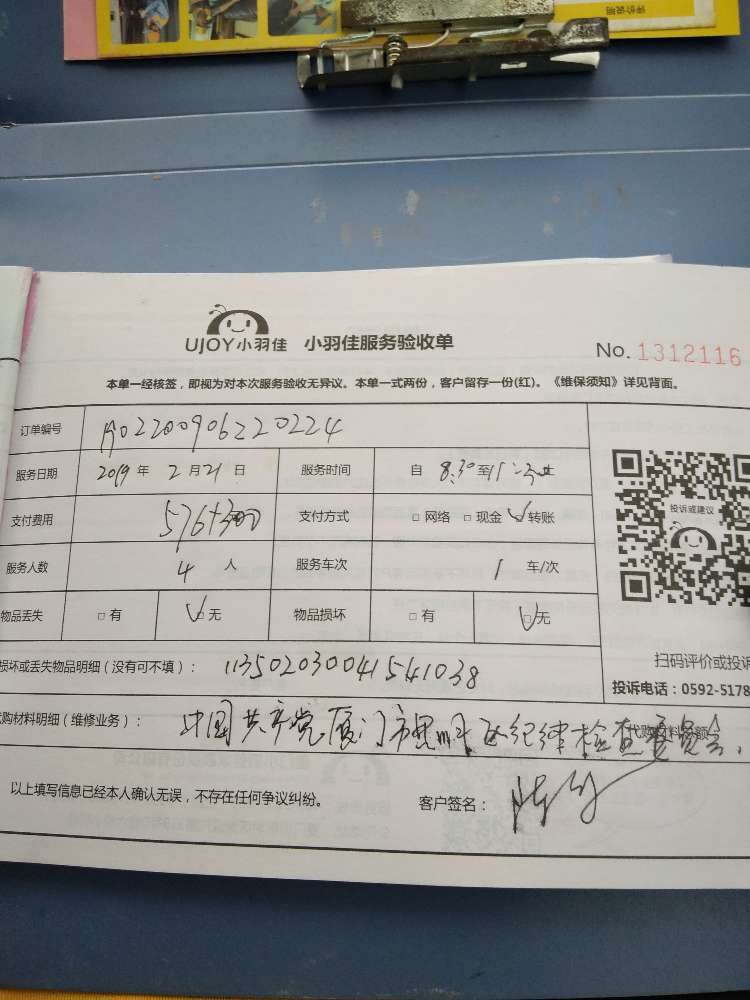 UJOY小羽佳 小羽佳服务验收单 No. 1312116
本单一经核签，即视为对本次服务验收无异议。本单一式两份，客户留存一份(红)。《维保须知》详见背面。
订单编号 A02200906220224
服务日期 2019 年 2 月 21 日 服务时间 自 8:30 至
支付费用 576+300 支付方式 □ 网络 □ 现金 ☑ 转账
服务人数 4 人 服务车次 1 车/次
投诉或建议
物品丢失 □ 有 ☑ 无 物品损坏 □ 有 ☑ 无
扫码评价或投诉
损坏或丢失物品明细（没有可不填）： 11350203004154103B
投诉电话：0592-5178
购材料明细（维修业务）： 中国共产党厦门市思明区纪律检查委员会
以上填写信息已经本人确认无误，不存在任何争议纠纷。 客户签名：